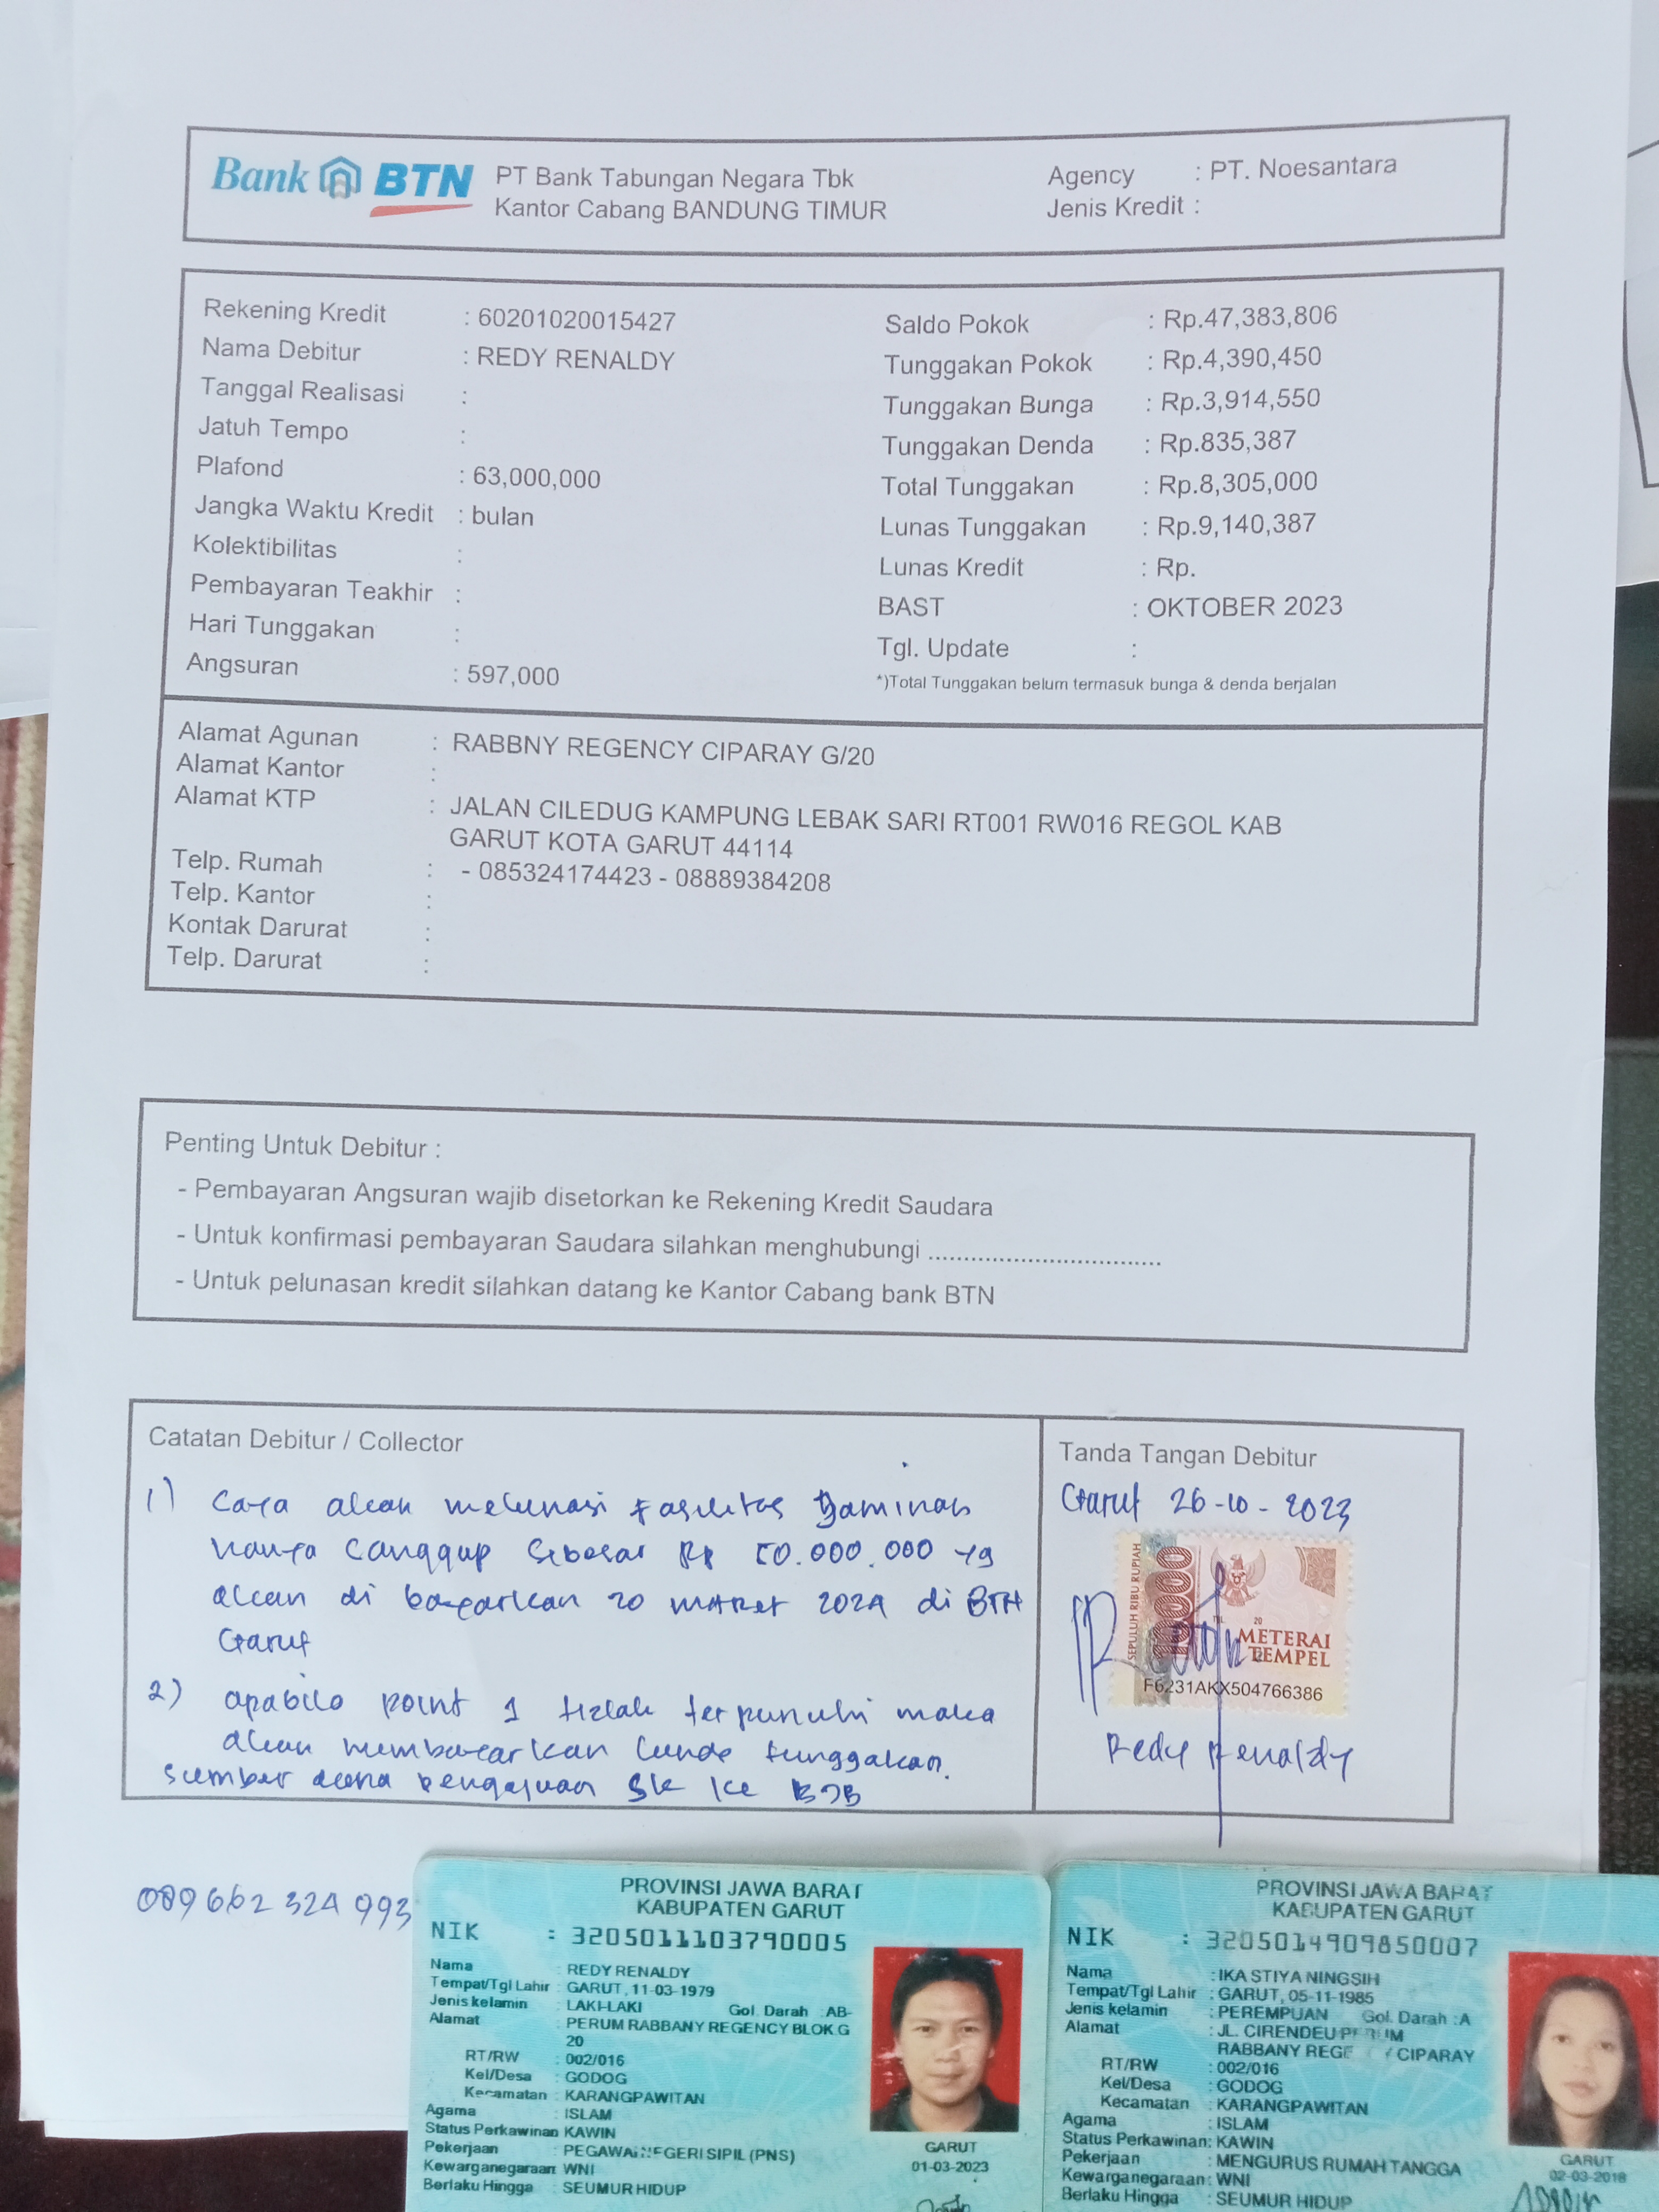 Bank BTN
PT Bank Tabungan Negara Tbk
Kantor Cabang BANDUNG TIMUR
Agency : PT. Noesantara
Jenis Kredit :
Rekening Kredit : 60201020015427
Nama Debitur : REDY RENALDY
Tanggal Realisasi :
Jatuh Tempo :
Plafond : 63,000,000
Jangka Waktu Kredit : bulan
Kolektibilitas :
Pembayaran Teakhir :
Hari Tunggakan :
Angsuran : 597,000
Saldo Pokok : Rp.47,383,806
Tunggakan Pokok : Rp.4,390,450
Tunggakan Bunga : Rp.3,914,550
Tunggakan Denda : Rp.835,387
Total Tunggakan : Rp.8,305,000
Lunas Tunggakan : Rp.9,140,387
Lunas Kredit : Rp.
BAST : OKTOBER 2023
Tgl. Update :
*)Total Tunggakan belum termasuk bunga & denda berjalan
Alamat Agunan : RABBNY REGENCY CIPARAY G/20
Alamat Kantor :
Alamat KTP : JALAN CILEDUG KAMPUNG LEBAK SARI RT001 RW016 REGOL KAB
GARUT KOTA GARUT 44114
Telp. Rumah : - 085324174423 - 08889384208
Telp. Kantor :
Kontak Darurat :
Telp. Darurat :
Penting Untuk Debitur :
- Pembayaran Angsuran wajib disetorkan ke Rekening Kredit Saudara
- Untuk konfirmasi pembayaran Saudara silahkan menghubungi ................................
- Untuk pelunasan kredit silahkan datang ke Kantor Cabang bank BTN
Catatan Debitur / Collector
1) Saya akan melunasi fasilitas Jaminan
hanya sanggup sebesar Rp 50.000.000 yg
akan di bayarkan 20 maret 2024 di BTN
Garut
2) apabila point 1 tidak terpenuhi maka
akan membayarkan lunas tunggakan.
sumber dana pengajuan SK ke BJB
Tanda Tangan Debitur
Garut 26-10-2023
SEPULUH RIBU RUPIAH
10000
TGL. 20
METERAI
TEMPEL
F6231AKX504766386
Redy Renaldy
089662324993
PROVINSI JAWA BARAT
KABUPATEN GARUT
NIK : 3205011103790005
Nama : REDY RENALDY
Tempat/Tgl Lahir : GARUT, 11-03-1979
Jenis kelamin : LAKI-LAKI Gol. Darah :AB-
Alamat : PERUM RABBANY REGENCY BLOK.G
20
RT/RW : 002/016
Kel/Desa : GODOG
Kecamatan : KARANGPAWITAN
Agama : ISLAM
Status Perkawinan: KAWIN
Pekerjaan : PEGAWAI NEGERI SIPIL (PNS)
Kewarganegaraan: WNI
Berlaku Hingga : SEUMUR HIDUP
GARUT
01-03-2023
PROVINSI JAWA BARAT
KABUPATEN GARUT
NIK : 3205014909850007
Nama : IKA STIYA NINGSIH
Tempat/Tgl Lahir : GARUT, 05-11-1985
Jenis kelamin : PEREMPUAN Gol. Darah :A
Alamat : JL. CIRENDEU
RABBANY CIPARAY
RT/RW : 002/016
Kel/Desa : GODOG
Kecamatan : KARANGPAWITAN
Agama : ISLAM
Status Perkawinan: KAWIN
Pekerjaan : MENGURUS RUMAH TANGGA
Kewarganegaraan: WNI
Berlaku Hingga : SEUMUR HIDUP
GARUT
02-03-2018